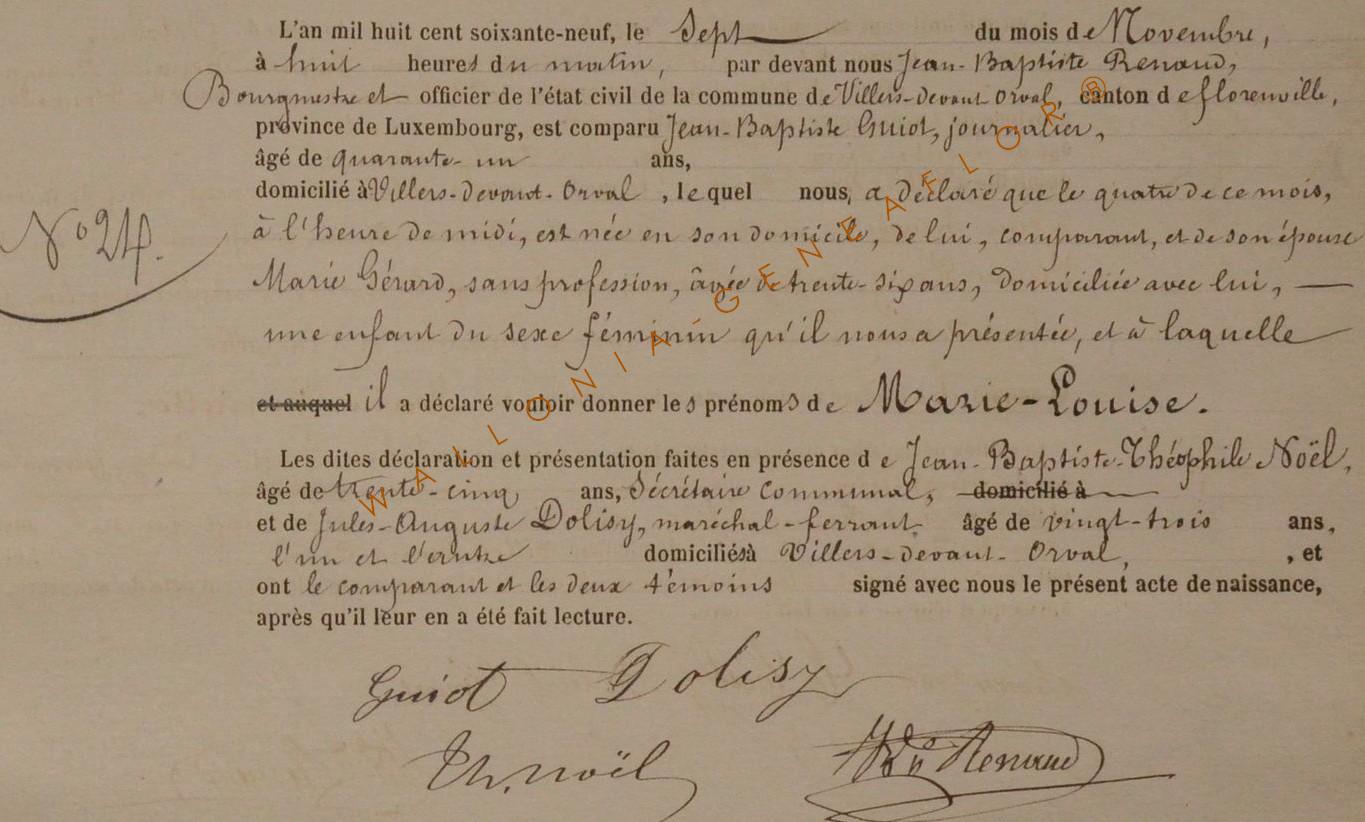 L'an mil huit cent soixante-neuf, le Sept du mois de Novembre,
à huit heures du matin, par devant nous Jean-Baptiste Renaud,
Bourgmestre et officier de l'état civil de la commune de Villers-devant Orval, canton de florenville,
province de Luxembourg, est comparu Jean-Baptiste Guiot, journalier,
âgé de quarante-un ans,
domicilié à Villers-devant-Orval, lequel nous, a déclaré que le quatre de ce mois,
No 24.
à l'heure de midi, est née en son domicile, de lui, comparant, et de son épouse
Marie Gérard, sans profession, âgée de trente-six ans, domiciliée avec lui, —
une enfant du sexe féminin qu'il nous a présentée, et à laquelle
et auquel il a déclaré vouloir donner les prénoms de Marie-Louise.
Les dites déclaration et présentation faites en présence de Jean-Baptiste-Théophile Noël,
âgé de trente-cinq ans, Sécrétaire Communal, domicilié à
et de Jules-Auguste Dolisy, maréchal-ferrant âgé de vingt-trois ans,
l'un et l'autre domiciliés à Villers-devant-Orval, , et
ont le comparant et les deux témoins signé avec nous le présent acte de naissance,
après qu'il leur en a été fait lecture.
Guiot Dolisy
Th. Noël Renaud
WALLONIA GENEAFLOR®